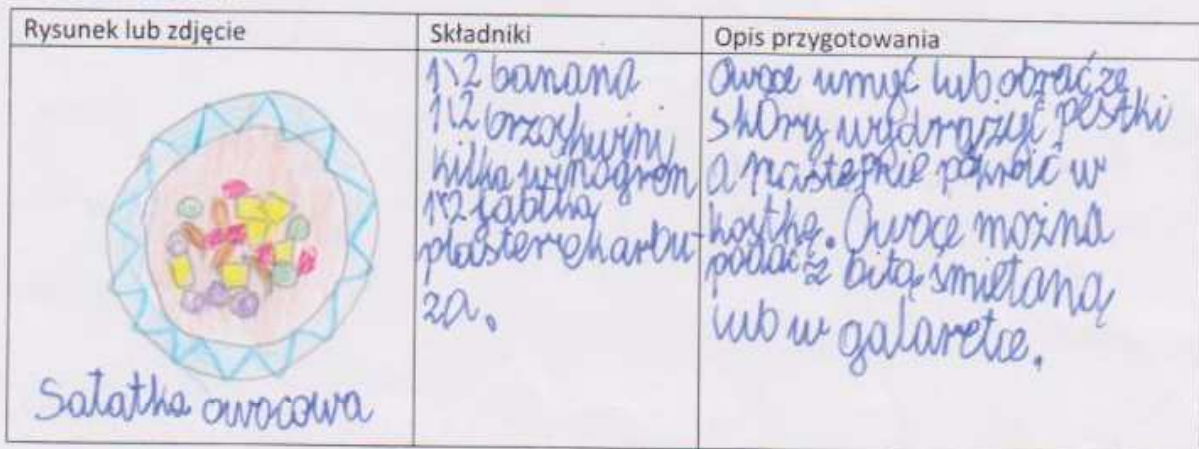 Rysunek lub zdjęcie
Składniki
Opis przygotowania
Sałatka owocowa
1\2 banana
1\2 brzoskwini
kilka winogron
1\2 jabłka
plasterek arbu-
za.
Owoce umyć lub obrać ze
skóry wydrążyć pestki
a następnie pokroić w
kostkę. Owoce można
podać z bitą śmietaną
lub w galaretce.